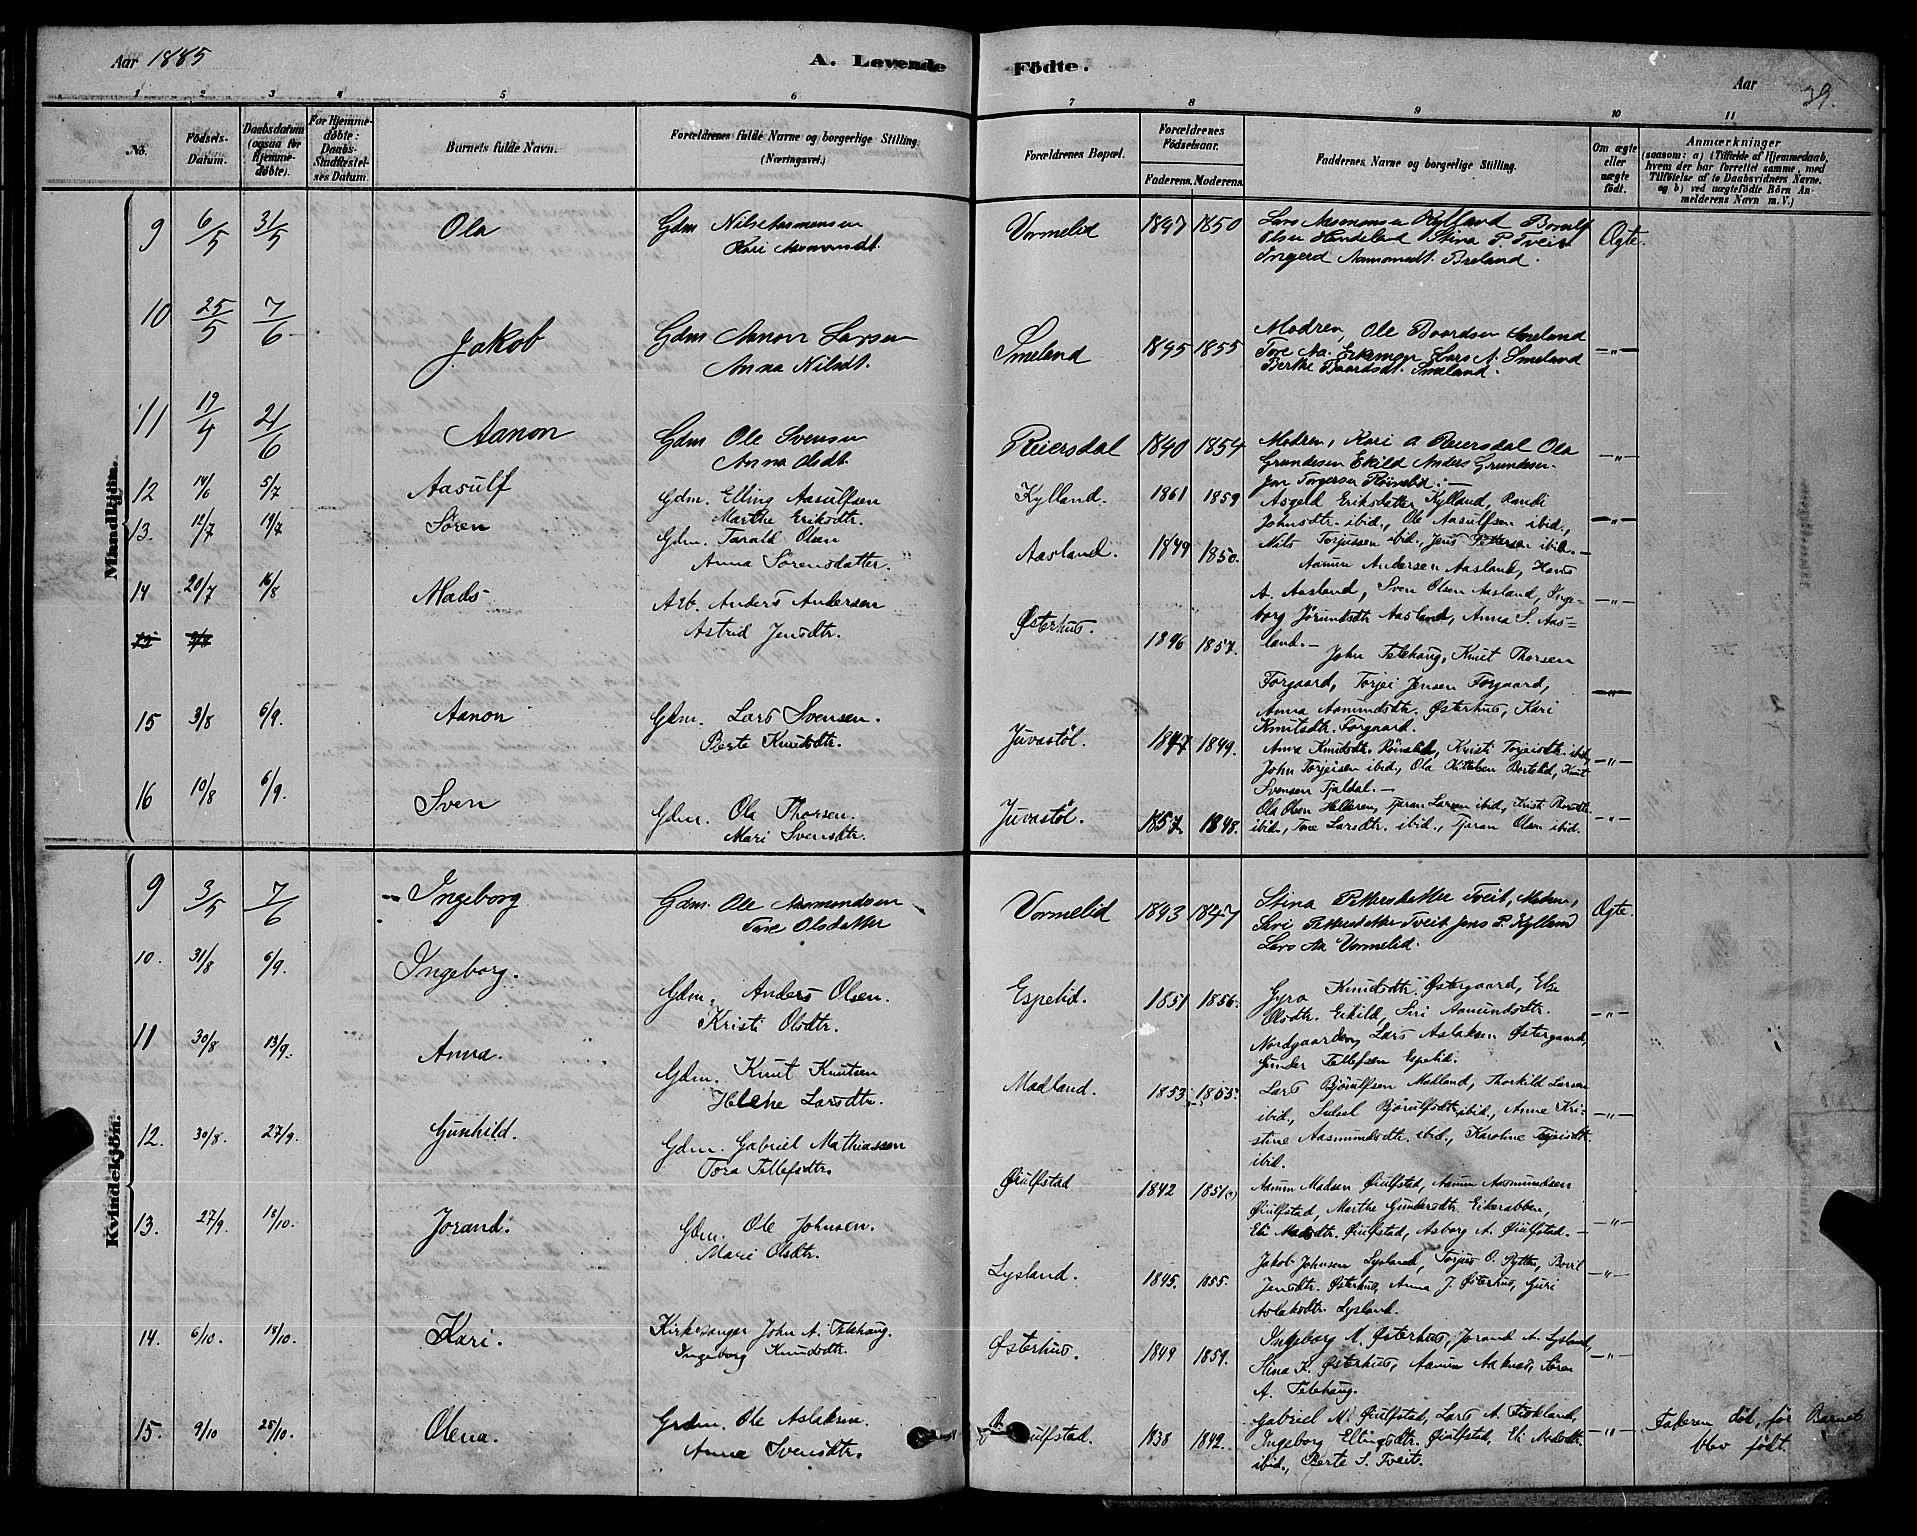 Aar 1885
A. Levende Födte.
Aar
39.
1 2 3 4 5 6 7 8 9 10 11
No.
Födsels-Datum.
Daabsdatum (ogsaa for Hjemme-döbte).
For Hjemme-döbte: Daabs-Stadfæstel-ses Datum.
Barnets fulde Navn.
Forældrenes fulde Navne og borgerlige Stilling. (Næringsvei.)
Forældrenes Bopæl.
Forældrenes Födselsaar.
Faderens. Moderens.
Faddernes Navne og borgerlige Stilling.
Om ægte eller uægte födt.
Anmærkninger
(saasom: a) i Tilfælde af Hjemmedaab,
hvem der har forrettet samme, med
Tilföielse af to Daabsvidners Navne.
og b) ved uægtefödte Börn An-
melderens Navn m. V.)
Mandkjön.
9 6/5 31/5 Ola Gdm Nils Aasmunsen
Kari Aasmundt.
Vormelid 1847 1850
Lars Aasmunsen Kylland
Olsen Handeland Stina P. Tveit
Ingerd Aamomdt. Breland.
Ægte.
10 25/5 7/6 Jakob Gdm Aanon Larsen
Anna Nilsdt.
Smeland 1845 1855
Modren, Ole Baardsen Smeland
Tore Aa. Lars A. Smeland
Berthe Baardsdt. Smeland.
—"—
11 19/4 21/6 Aanon Gdm Ole Svensen
Anna Olsdt.
Reiersdal 1840 1854
Modren, Kari A Reiersdal Ola
Grundesen Ekild Anders Grundesen.
Jon Torgersen
—"—
12 14/6 5/7 Aasulf Gdm. Elling Aasulfsen
Marthe Eriksdtr.
Kylland. 1861 1859
Asgeld Eriksdatter Kylland, Randi
Johnsdtr. ibid., Ole Aasulfsen ibid.,
Nils Torjussen ibid., Jens Pettersen ibid.
—"—
13. 12/7 19/7 Søren Gdm. Tarald Olsen
Anna Sörensdatter.
Aasland. 1849 1850.
Aanun Andersen Aasland, Hans
A. Aasland, Sven Olsen Aasland, Inge-
borg Jörundsdtr Aasland, Anna S. Aas=
land.
—"—
14 20/7 16/8 Mads Arb. Anders Andersen
Astrid Jensdtr.
Østerhus. 1846 1857.
John Telehaug, Knut Thorsen
Forgaard, Torjei Jensen Forgaard,
Anna Aamundsdtr. Østerhus, Kari
Knutsdtr. Forgaard.
—"—
15 3/8 6/9. Aanon Gdm. Lars Svensen.
Berte Knudsdtr.
Juvastöl. 1847 1849.
Anna Knudsdtr. Röinslid, Kristi Torjeisdtr. ibid,
John Torjeisen ibid., Ola Kittelsen Bortelid, Knut
Svensen Tjaldal.
—"—
16 10/8 6/9. Sven Gdm. Ola Thorsen.
Mari Svensdtr.
Juvastöl. 1857 1848.
Ola Olsen Helleren, Tjaran Larsen ibid, Kristi Thorsdtr.
ibid., Tone Larsdtr. ibid., Tjaran Olsen ibid.
—"—
Kvindekjön.
9 3/5 7/6 Ingeborg Gdm. Ole Aasmundsen
Tore Olsdatter
Vormelid 1843 1847
Stina Pettersdatter Tveit, Modren,
Siri Pettersdatter Tveit Jens P. Kylland
Lars Aa Vormelid.
Ægte.
10. 31/8 6/9. Ingeborg. Gdm. Anders Olsen.
Kristi Olsdtr.
Espelid. 1851 1856.
Gyro Knudsdtr. Østergaard, Else
Olsdtr. Eskild, Siri Aamundsdtr.
Nordgaarden, Lars Aslaksen Østergaard,
Gunder Tellefsen Espelid.
—"—
11 30/8 13/9. Anna. Gdm. Knut Knutsen
Helene Larsdtr.
Madland. 1853 1863.
Lars Björulfsen Madland, Thorkild Larsen
ibid., Sidsel Björulfsdtr ibid., Anne Kri-
stine Aasmundsdtr. ibid., Karoline Torjeisdtr.
ibid.
—"—
12. 30/8. 27/9. Gunhild. Gdm. Gabriel Mathiassen
Tora Tellefsdtr.
Øiulfstad 1842 1851(?)
Aanun Madsen Øiulfstad, Aanun Aasmundsen
Øiulfstad, Marthe Gundersdtr. Eikerabben,
Eli Madsdtr. Øiulfstad, Asborg A. Øiulfstad.
—"—
13. 27/9. 18/10. Jorand. Gdm. Ole Johnsen.
Mari Olsdtr.
Lysland. 1845. 1855.
Jakob Johnsen Lysland, Torjus O. Rytter, Boril
Jensdtr. Østerhus, Anna J. Østerhus, Guri
Aslaksdtr. Lysland.
—"—
14. 6/10. 18/10. Kari. Kirkesanger John A. Telehaug.
Ingeborg Knudsdtr.
Østerhus. 1849 1859.
Ingeborg A. Østerhus, Jorand A. Lysland,
Stina K. Østerhus, Aanun Aaknes, Sören
A. Telehaug.
—"—
15. 9/10 25/10. Olena. Grdm. Ole Aslaksen.
Anne Svensdtr.
Øiulfstad. 1838 1842.
Gabriel M. Øiulfstad, Lars A. Fiskland,
Ingeborg Ellingsdtr. Øiulfstad, Eli Madsdtr.
ibid., Berte S. Tveit.
—"—
Faderen död, før Barnet
blev født.